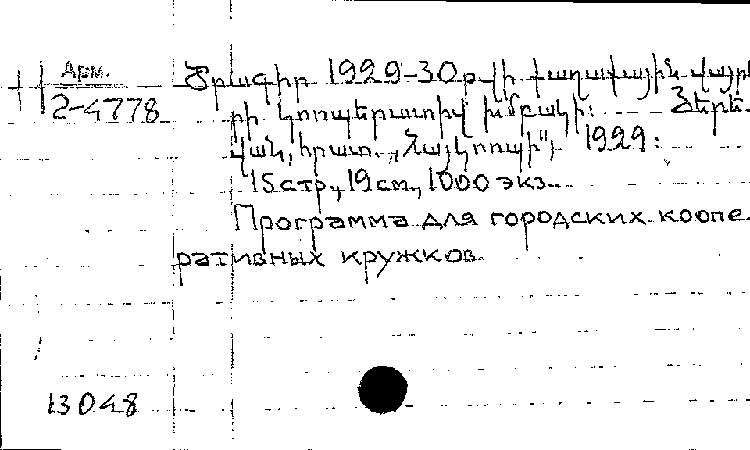 Арм.
2-4778
Ծրագիր 1929-30 թ-վի քաղաքային վայրե
րի կոոպերատիվ խմբակի: Յերե-
վան, հրատ. „Հայկոոպի“, 1929:
15 стр., 19 см., 1000 экз.
Программа для городских коопе-
ративных кружков.
13048